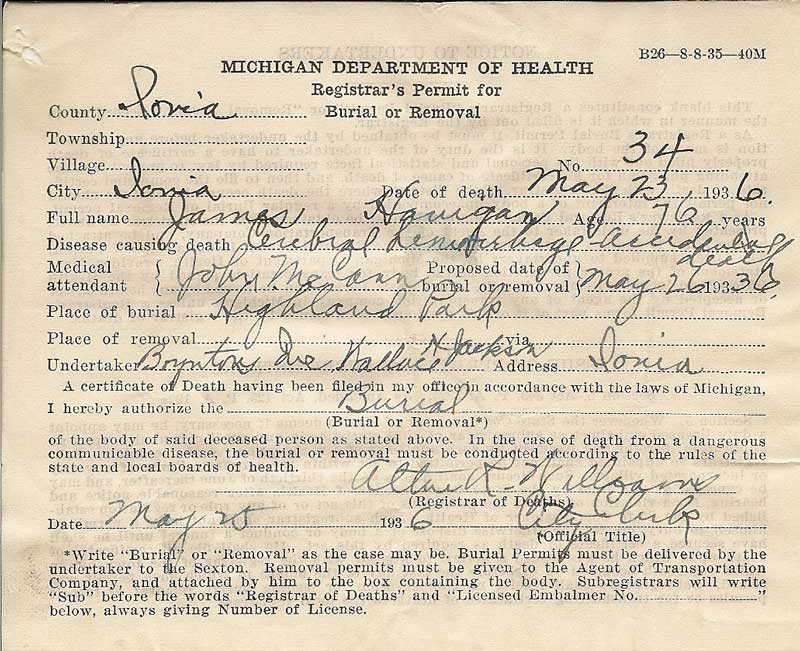 B26—8-8-35—40M
MICHIGAN DEPARTMENT OF HEALTH
Registrar's Permit for
County Ionia Burial or Removal
Township
Village No. 34
City Ionia Date of death May 23, 1936.
Full name James Hanigan Age 76 years
Disease causing death Cerebral Accidental
death
Medical attendant John McCann Proposed date of burial or removal May 26 1936.
Place of burial Highland Park
Place of removal via
Undertaker Boyntons Wallace H Jackson Address Ionia
A certificate of Death having been filed in my office in accordance with the laws of Michigan,
I hereby authorize the Burial
(Burial or Removal*)
of the body of said deceased person as stated above. In the case of death from a dangerous
communicable disease, the burial or removal must be conducted according to the rules of the
state and local boards of health.
R. Williams
(Registrar of Deaths)
Date May 25 1936 City Clerk
(Official Title)
*Write "Burial" or "Removal" as the case may be. Burial Permits must be delivered by the
undertaker to the Sexton. Removal permits must be given to the Agent of Transportation
Company, and attached by him to the box containing the body. Subregistrars will write
"Sub" before the words "Registrar of Deaths" and "Licensed Embalmer No. "
below, always giving Number of License.